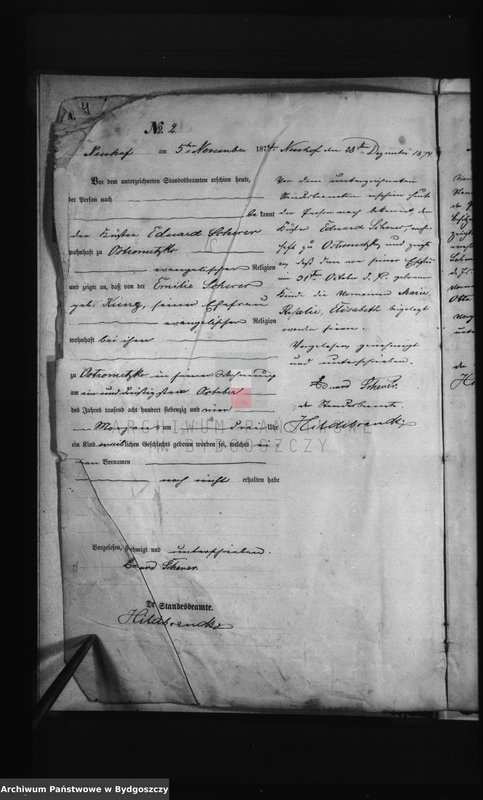 A. 4
№ 2
Neuhof am 5ten November 1874
Vor dem unterzeichneten Standesbeamten erschien heute,
der Person nach
be kannt
der Küster Eduard Scherer
wohnhaft zu Ostrometzko
evangelischer Religion
und zeigte an, daß von der Emilie Scherer
geb: Kunz, seiner Ehefrau
evangelischer Religion
wohnhaft bei ihm
zu Ostrometzko in seiner Wohnung
am ein und dreißigsten October
des Jahres tausend acht hundert siebenzig und vier
Morgens um drei Uhr
ein Kind weiblichen Geschlechts geboren worden sei, welches ei-
nen Vornamen
noch nicht erhalten habe
Vorgelesen, genehmigt und unterschrieben.
Eduard Scherer
Der Standesbeamte.
Hildebrandt
Neuhof den 28ten Dezember 1874
Vor dem unterzeichneten
Standesbeamten erschien heute
der Person nach bekannt, der
Küster Eduard Scherer, wohn-
haft zu Ostrometzko, und zeigte
an, daß dem von seiner Ehefrau
am 31ten October d. Js. geborenen
Kinde die Vornamen Marie
Rosalie Elisabeth beigelegt
worden seien.
Vorgelesen genehmigt
und unterschrieben.
Eduard Scherer
der Standesbeamte.
Hildebrandt
ARCHIWUM PAŃSTWOWE
W BYDGOSZCZY
Archiwum Państwowe w Bydgoszczy